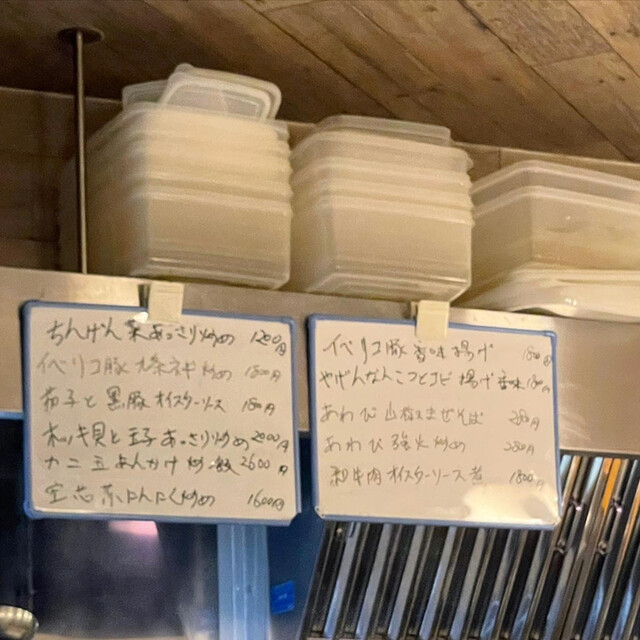 ちんげん菜あっさり炒め 1200円
イベリコ豚 炒め 1800円
茄子と黒豚オイスターソース 1800円
ホッキ貝と玉子あっさり炒め 2000円
カニ玉あんかけ炒飯 2600円
空芯菜にんにく炒め 1600円
イベリコ豚香味揚げ 1800円
やげんなんこつとエビ揚げ香味 1800円
あわび山椒まぜそば 2800円
あわび強火炒め 2800円
和牛肉オイスターソース煮 1800円